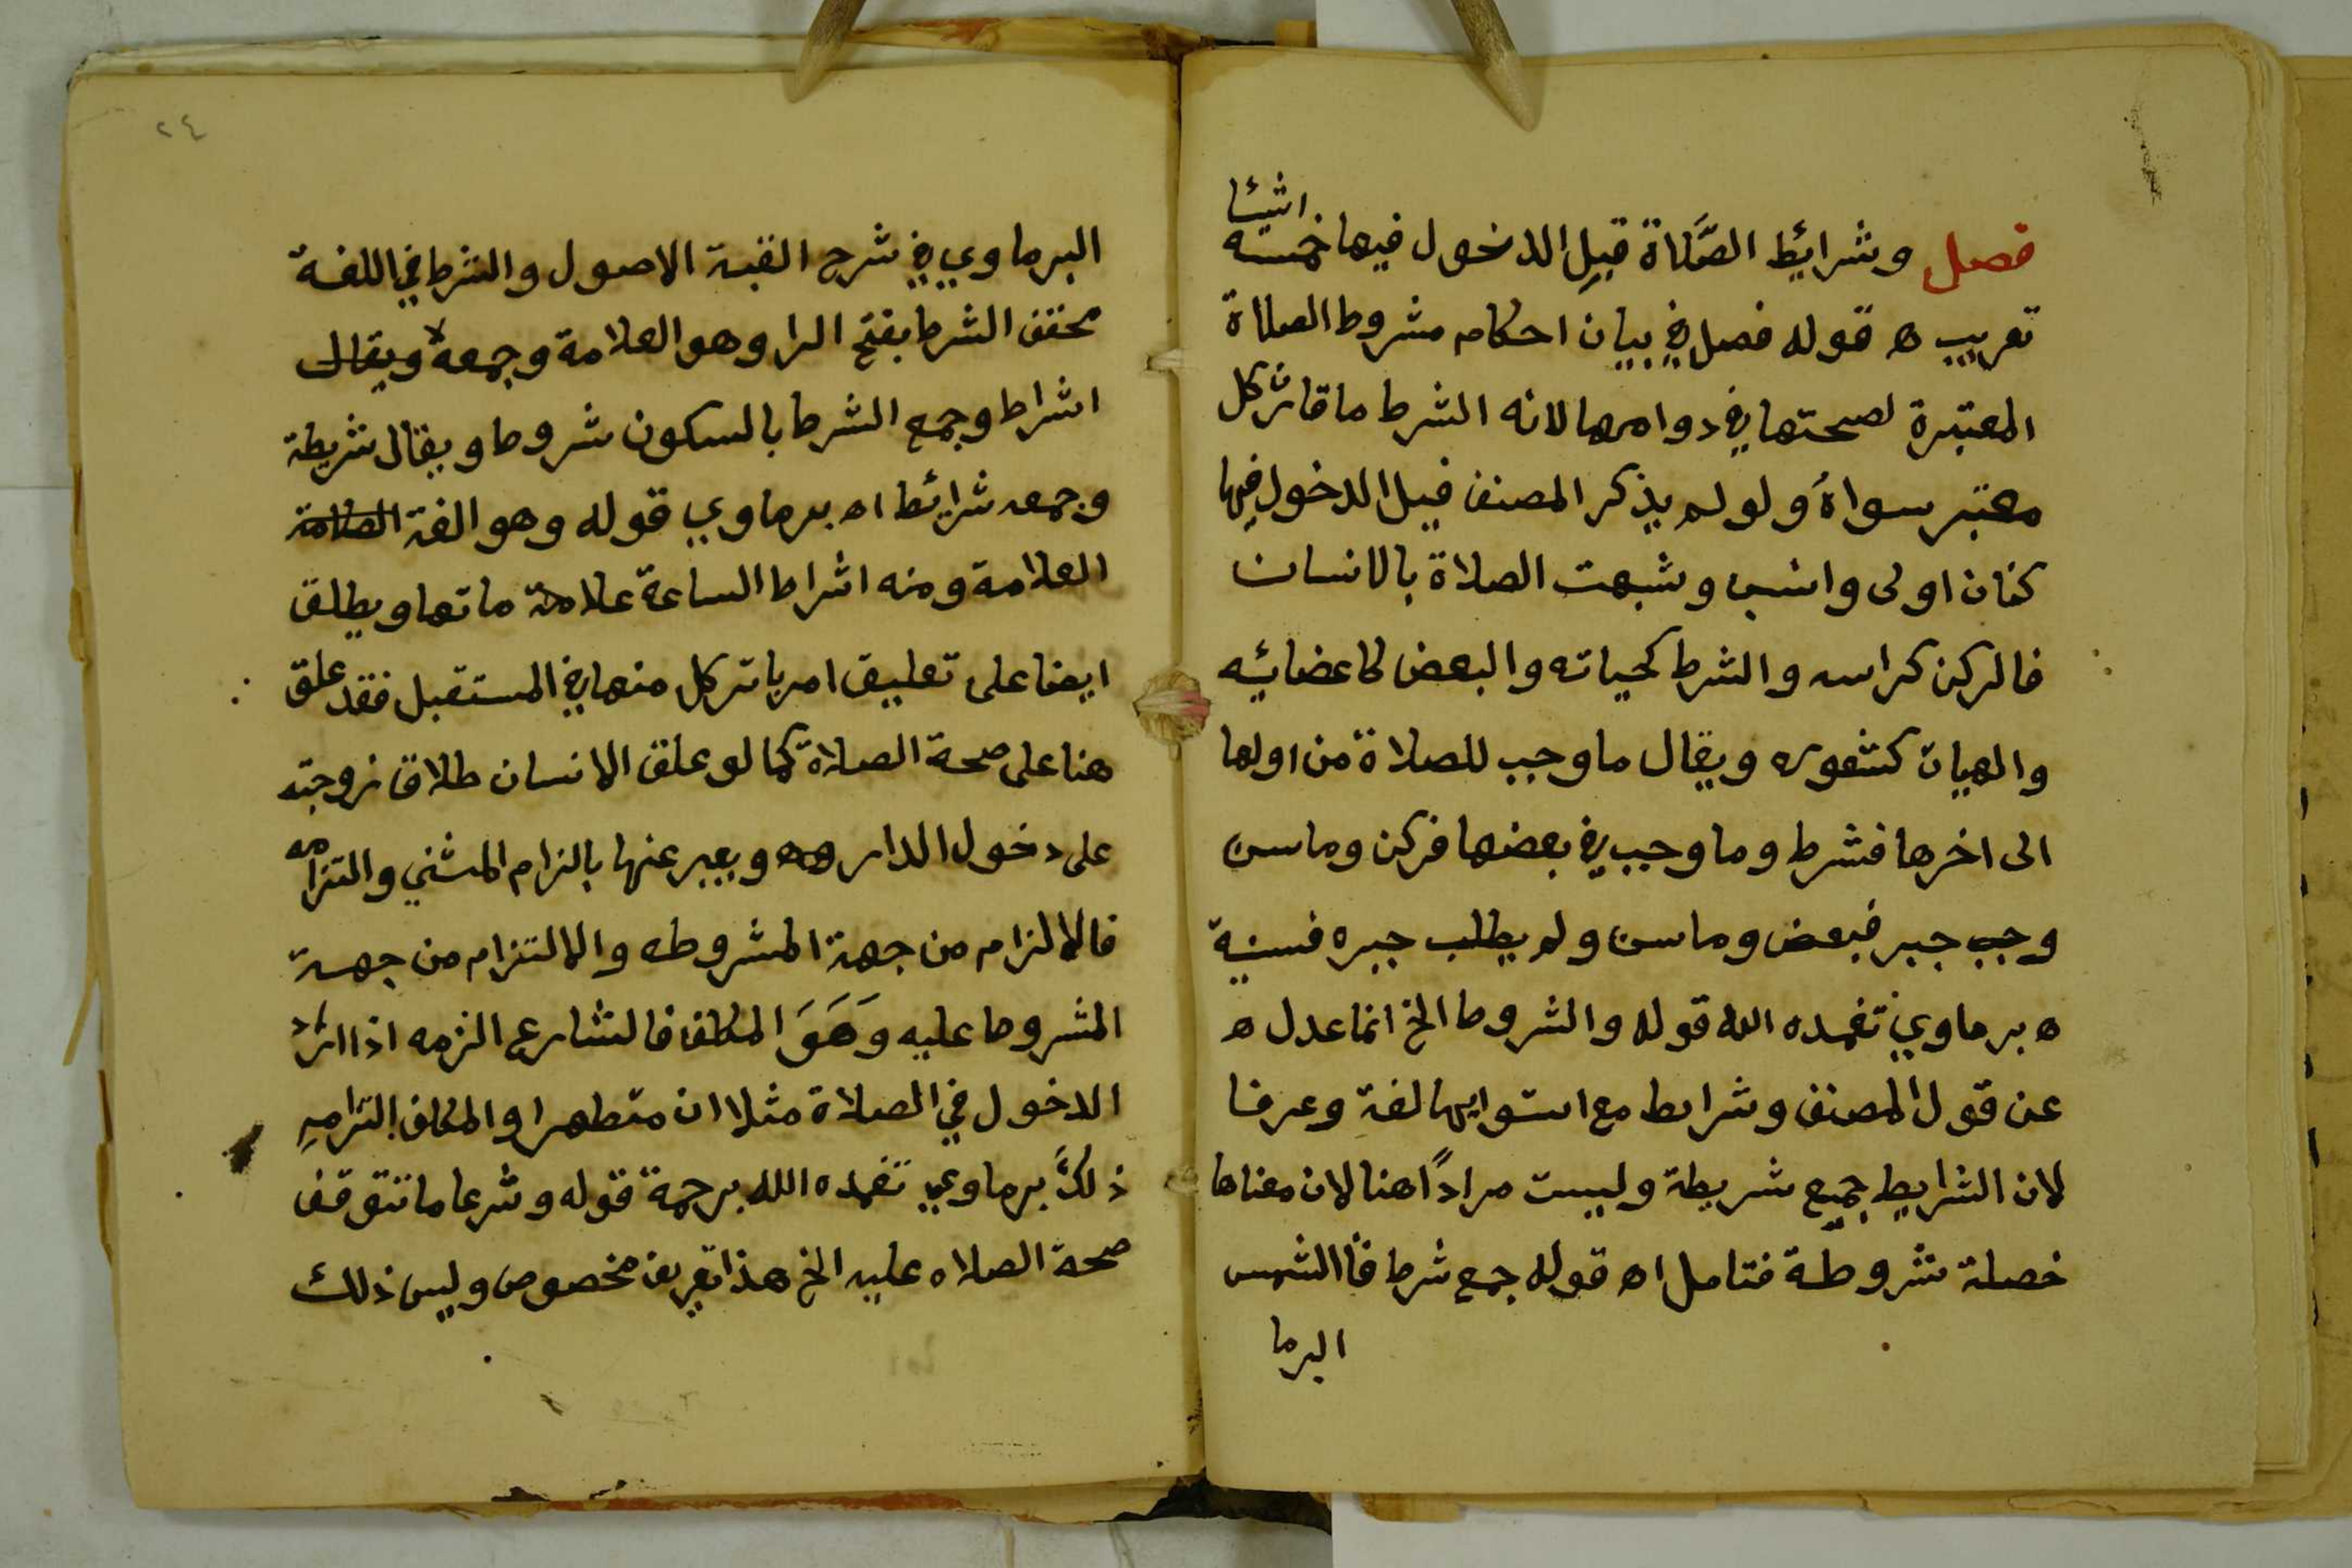 فصل وشرايط الصَّلاة قبل الدخول فيها خمسة اشيا
تعريب ه قوله فصل في بيان احكام مشروط الصلاة
المعتبرة لصحتها في دوامها لانه الشرط ما قارن كل
معتبر سواهُ ولو لم يذكر المصنف قبل الدخول فيها
كنان اولى وانسب وشبهت الصلاة بالانسان
فالركن كراسه والشرط كحياته والبعض كاعضائه
والهيات كشعوره ويقال ما وجب للصلاة من اولها
الى اخرها فشرط وما وجب في بعضها فركن وماسن
وجب جبر فبعض وماسن ولم يطلب جبره فسنية
ه برماوي تغمده الله قوله والشروط الخ انما عدل ه
عن قول المصنف وشرايط مع استوايهما لغة وعرفا
لان الشرايط جميع شريطة وليست مرادًا هنا لان معناها
خصلة شروطة فتامل اه قوله جمع شرط قال الشمس
البرما
٢٤
البرماوي في شرح الفية الاصول والشرط في اللغة
مخفف الشرط بفتح الرا وهو العلامة وجمعه ويقال
اشراط وجمع الشرط بالسكون شروط ويقال شريطة
وجمعه شرائط اه برماوي قوله وهو الغة العلامة
العلامة ومنه اشراط الساعة علامة ماتها ويطلق
ايضا على تعليق امر باتر كل منها في المستقبل فقد علق
هنا على صحة الصلاة كما لو علق الانسان طلاق زوجته
على دخول الدار وهو ويعبر عنها بالزام الشي والتزامه
فالالزام من جهة المشروط والالتزام من جهة
المشروط عليه وَهَوَ المكلف فالشارع الزمه اذا اراد
الدخول في الصلاة مثلا ان متطهرا والمكلف التزامه
ذلك برماوي تغمده الله برحمة قوله وشرعا ما تتوقف
صحة الصلاه عليه الخ هذا تعريف مخصوص وليس ذلك